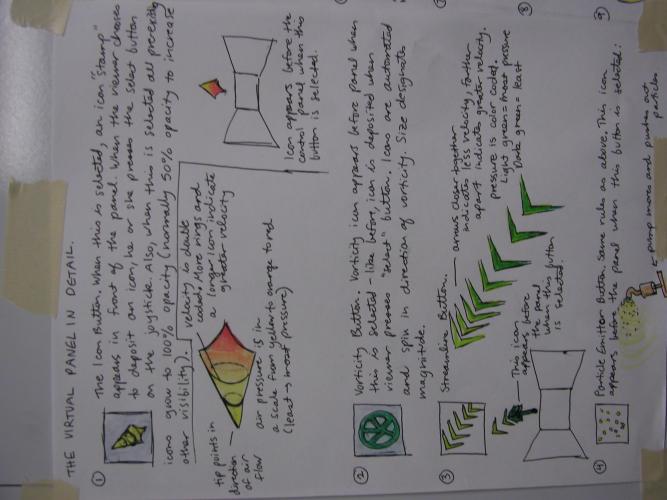 THE VIRTUAL PANEL IN DETAIL.
① The Icon Button. When this is selected, an icon "stamp"
appears in front of the panel. When the viewer chooses
to deposit an icon, he or she presses the select button
on the joystick. Also, when this is selected all preexisting
icons grow to 100% opacity (normally 50% opacity to increase
other visibility).
velocity is double
coded. More rings and
a longer icon indicate
greater velocity
tip points in
direction
of air
flow
air pressure is in
a scale from yellow to orange to red
(least → most pressure)
Icon appears before the
control panel when this
button is selected.
② Vorticity Button. Vorticity icon appears before panel when
this is selected - like before, icon is deposited when
viewer presses "select" button. Icons are automated
and spin in direction of vorticity. Size designates
magnitude.
③ Streamline Button.
arrows closer together
indicate less velocity, further
apart indicate greater velocity.
pressure is color coded.
Light green = most pressure
Dark green = least
This icon
appears before
the panel
when this button
is selected.
④ Particle Emitter Button. Same rules as above. This icon
appears before the panel when this button is selected:
pump moves and pushes out
particles
⑧
⑨